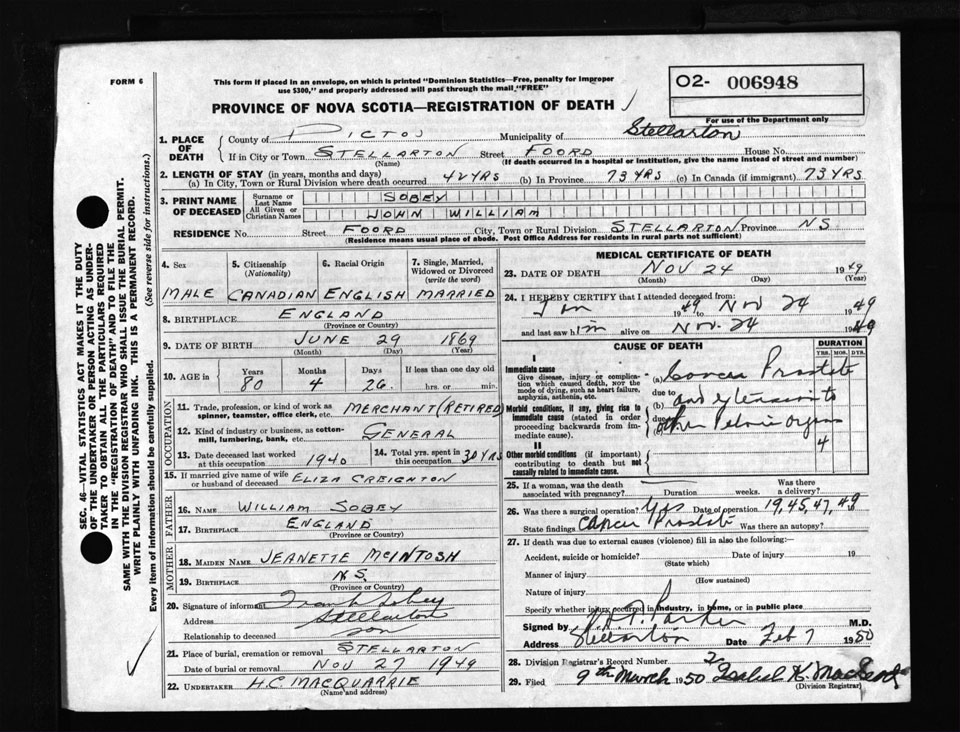 FORM 6
This form if placed in an envelope, on which is printed "Dominion Statistics—Free, penalty for improper
use $300," and properly addressed will pass through the mail "FREE"
O2- 006948
PROVINCE OF NOVA SCOTIA—REGISTRATION OF DEATH ✓
For use of the Department only
1. PLACE OF DEATH
County of PICTOU Municipality of Stellarton
If in City or Town STELLARTON Street FOORD House No.
(Name) (If death occurred in a hospital or institution, give the name instead of street and number)
2. LENGTH OF STAY (in years, months and days)
(a) In City, Town or Rural Division where death occurred 42 YRS (b) In Province 73 YRS (c) In Canada (if immigrant) 73 YRS
3. PRINT NAME OF DECEASED
Surname or Last Name SOBEY
All Given or Christian Names JOHN WILLIAM
RESIDENCE No. Street FOORD City, Town or Rural Division STELLARTON Province NS
(Residence means usual place of abode. Post Office Address for residents in rural parts not sufficient)
4. Sex
MALE
5. Citizenship
(Nationality)
CANADIAN
6. Racial Origin
ENGLISH
7. Single, Married,
Widowed or Divorced
(write the word)
MARRIED
8. BIRTHPLACE ENGLAND
(Province or Country)
9. DATE OF BIRTH JUNE 29 1869
(Month) (Day) (Year)
10. AGE in
Years Months Days If less than one day old
80 4 26 hrs. or min.
OCCUPATION
11. Trade, profession, or kind of work as
spinner, teamster, office clerk, etc. MERCHANT (RETIRED)
12. Kind of industry or business, as cotten-
mill, lumbering, bank, etc. GENERAL
13. Date deceased last worked
at this occupation 1940
14. Total yrs. spent in
this occupation 30 YRS
15. If married give name of wife
or husband of deceased ELIZA CREIGHTON
FATHER
16. NAME WILLIAM SOBEY
17. BIRTHPLACE ENGLAND
(Province or Country)
MOTHER
18. MAIDEN NAME JEANETTE MCINTOSH
19. BIRTHPLACE N.S.
(Province or Country)
20. Signature of informant Frank Sobey
Address Stellarton
Relationship to deceased son
21. Place of burial, cremation or removal STELLARTON
Date of burial or removal NOV 27 1949
22. UNDERTAKER H.C. MACQUARRIE
(Name and address)
MEDICAL CERTIFICATE OF DEATH
23. DATE OF DEATH NOV 24 1949
(Month) (Day) (Year)
24. I HEREBY CERTIFY that I attended deceased from:
Jan 1949 to Nov 24 1949
and last saw him alive on Nov. 24 1949
CAUSE OF DEATH
DURATION
YRS. MOS. DYS.
I
Immediate cause
Give disease, injury or compli-
cation which caused death, NOT the
mode of dying, such as heart failure,
asphyxia, asthenia, etc.
(a) Cancer Prostate
due to
Morbid conditions, if any, giving rise to
immediate cause (stated in order
proceeding backwards from im-
mediate cause).
(b) and extension to
due to
other Pelvic organs
4
II
Other morbid conditions (if important)
contributing to death but not
causally related to immediate cause.
25. If a woman, was the death
associated with pregnancy? Duration weeks. Was there
a delivery?
26. Was there a surgical operation? Yes Date of operation 19,45,47,49
State findings Cancer Prostate Was there an autopsy?
27. If death was due to external causes (violence) fill in also the following:—
Accident, suicide or homicide? Date of injury 19
(State which)
Manner of injury
(How sustained)
Nature of injury
Specify whether injury occurred in industry, in home, or in public place
Signed by Parker M.D.
Address Stellarton Date Feb 7 1950
28. Division Registrar's Record Number 2
29. Filed 9th March 1950 Isabel K. MacLeod
(Division Registrar)
SEC. 46—VITAL STATISTICS ACT MAKES IT THE DUTY
OF THE UNDERTAKER OR PERSON ACTING AS UNDER-
TAKER TO OBTAIN ALL THE PARTICULARS REQUIRED
IN THE "REGISTRATION OF DEATH" AND TO FILE THE
SAME WITH THE DIVISION REGISTRAR WHO SHALL ISSUE THE BURIAL PERMIT.
WRITE PLAINLY WITH UNFADING INK. THIS IS A PERMANENT RECORD.
Every item of information should be carefully supplied. (See reverse side for instructions.)